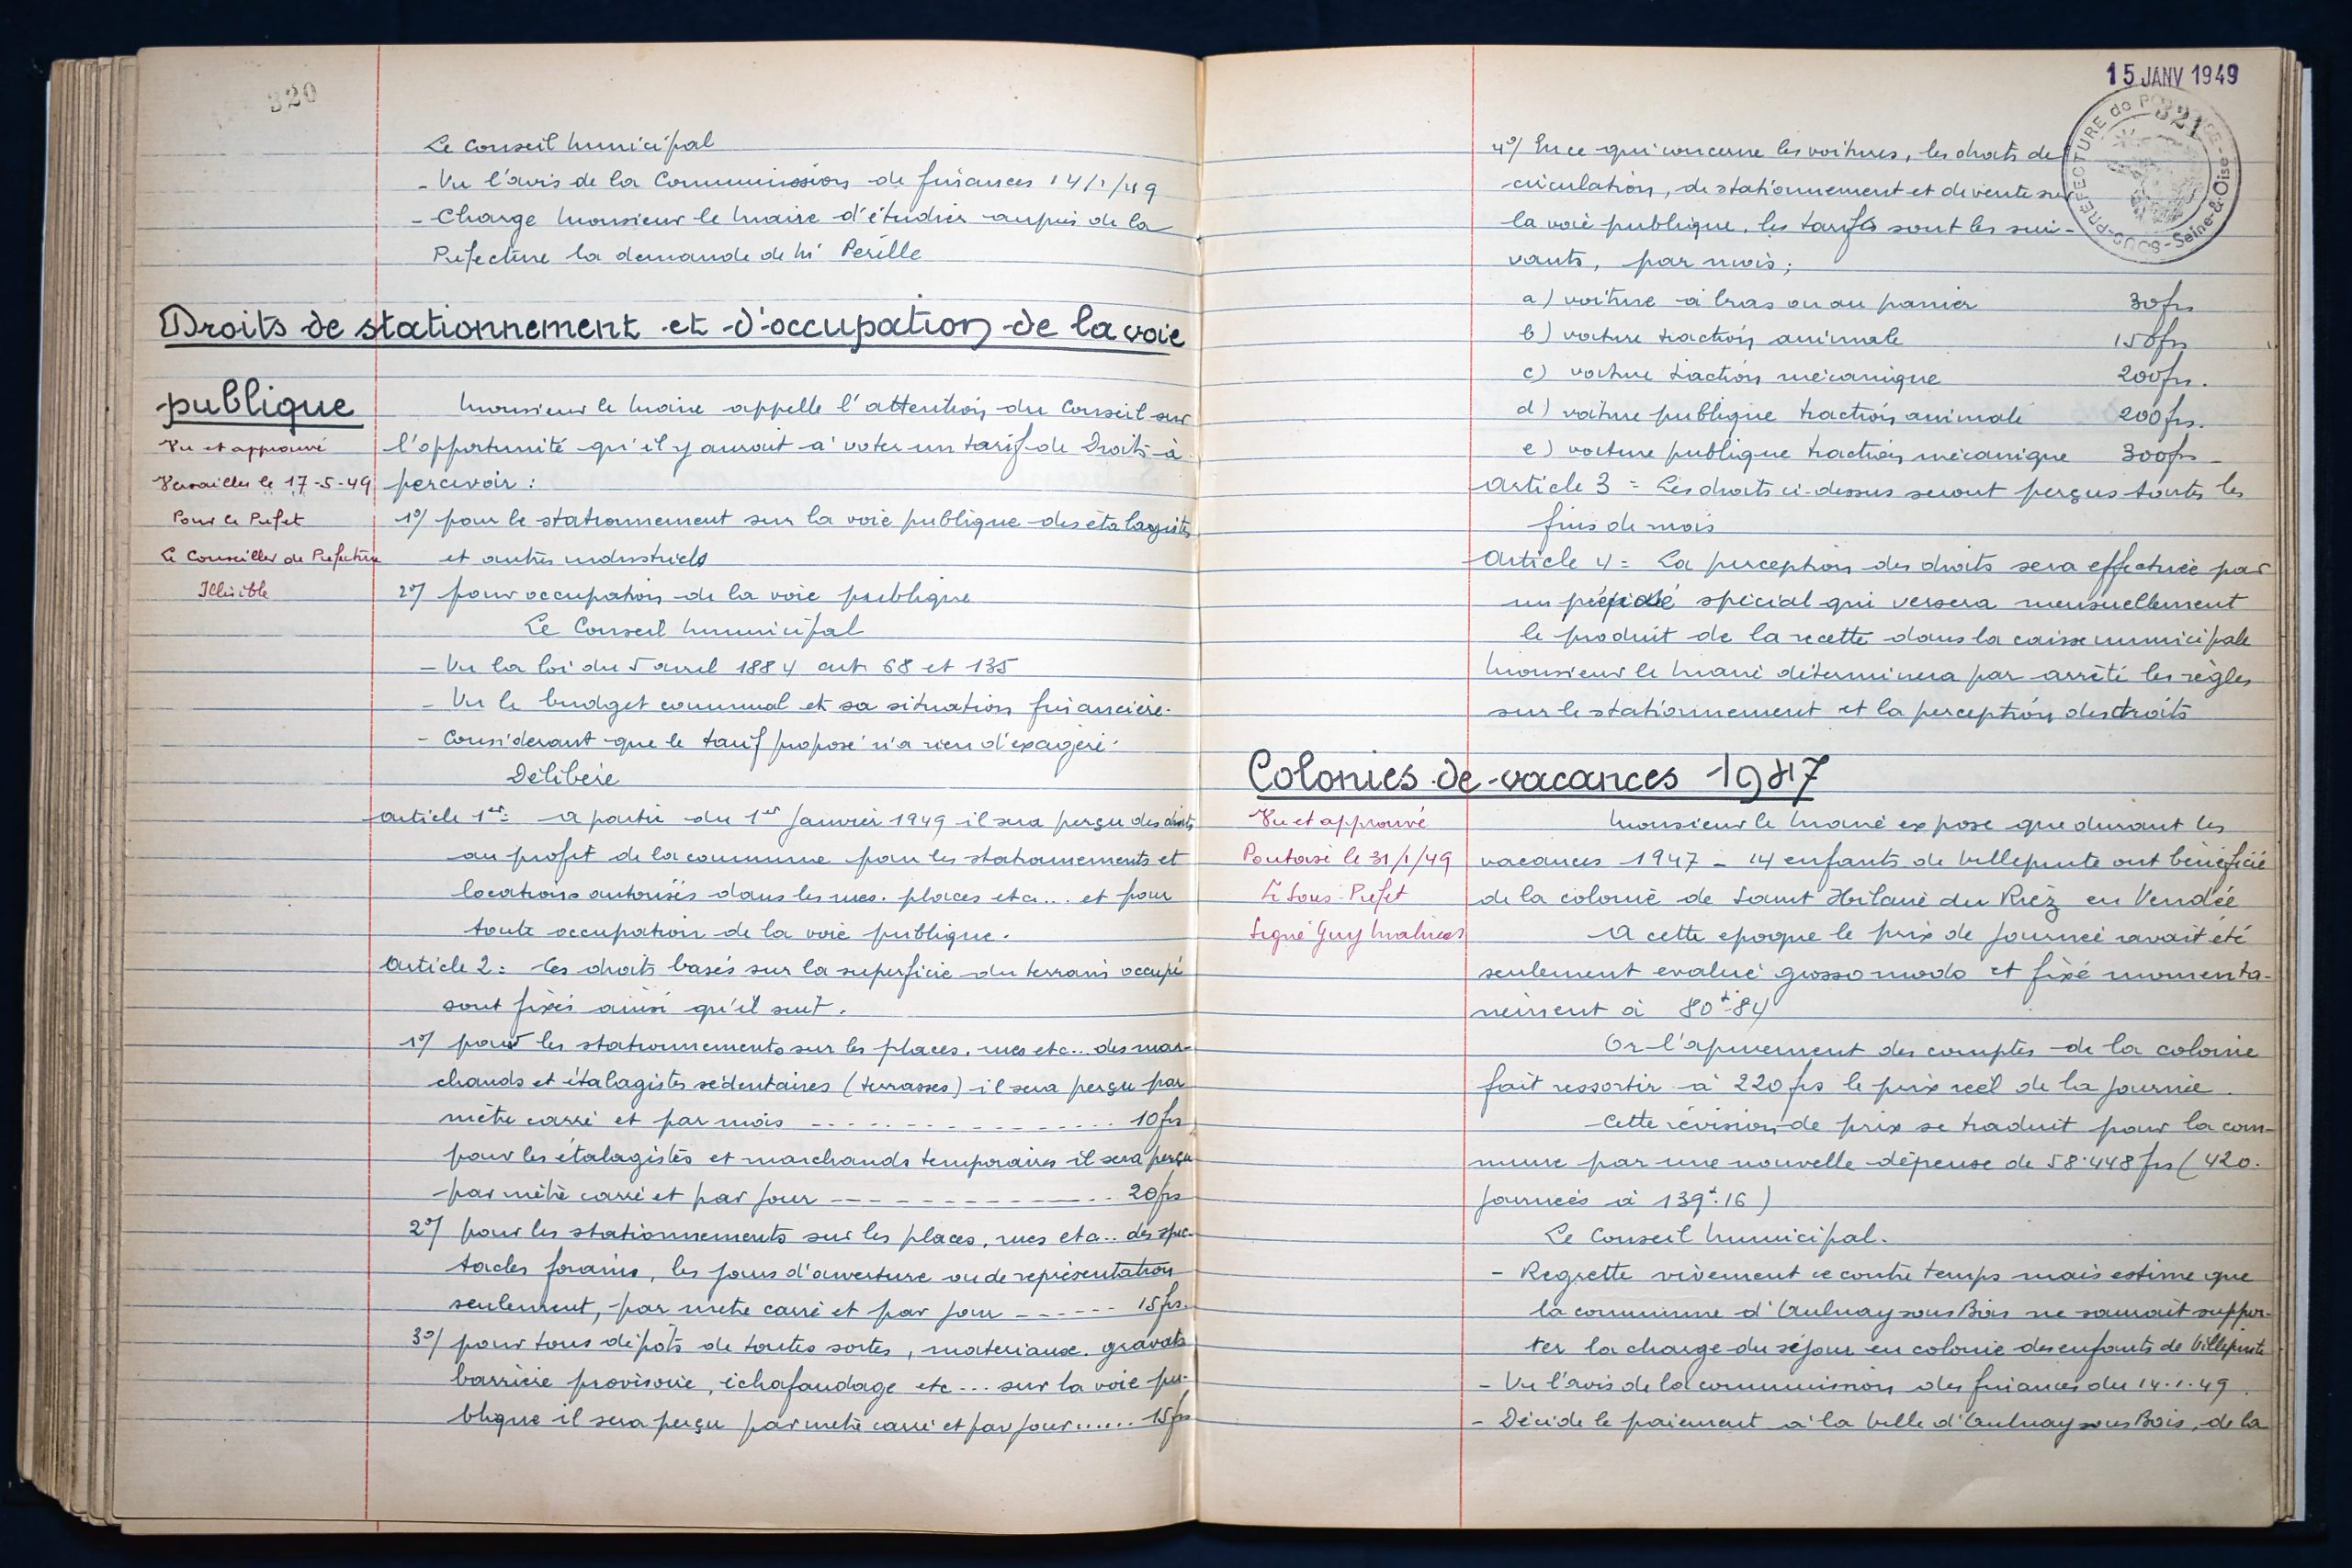 320
Le Conseil Municipal
- Vu l'avis de la Commission de finances 14/1/49
- Charge Monsieur le Maire d'étudier auprès de la
Préfecture la demande de Mr Perille
Droits de stationnement et d'occupation de la voie
publique
Monsieur le Maire appelle l'attention du Conseil sur
Vu et approuvé
l'opportunité qu'il y aurait à voter un tarif de Droits à
Versailles le 17-5-49
percevoir :
Pour le Préfet
1°/ pour le stationnement sur la voie publique des étalagistes
Le Conseiller de Préfecture
et autres industriels
Illisible
2°/ pour occupation de la voie publique
Le Conseil Municipal
- Vu la loi du 5 avril 1884 art. 68 et 135
- Vu le budget communal et sa situation financière.
- Considérant que le tarif proposé n'a rien d'exagéré.
Délibère
Article 1er: A partir du 1er Janvier 1949 il sera perçu des droits
au profit de la commune pour les stationnements et
locations autorisés dans les rues. places etc... et pour
toute occupation de la voie publique.
Article 2 : Les droits basés sur la superficie du terrain occupé
sont fixés ainsi qu'il suit.
1°/ pour les stationnements sur les places, rues etc... des mar-
chands et étalagistes sédentaires (terrasses) il sera perçu par
mètre carré et par mois ---------------- 10 frs
pour les étalagistes et marchands temporaires il sera perçu
par mètre carré et par jour ---------------- 20 frs
2°/ pour les stationnements sur les places, rues etc.. des spec-
tacles forains, les jours d'ouverture ou de représentation
seulement, par mètre carré et par jour ------ 15 frs.
3°/ pour tous dépôts de toutes sortes, matériaux. gravats
barrière provisoire, échafaudage etc... sur la voie pu-
blique il sera perçu par mètre carré et par jour...... 15 frs
15 JANV 1949
321
SOUS-PRÉFECTURE de - Seine-&-Oise -
4°/ En ce qui concerne les voitures, les droits de
circulation, de stationnement et de vente sur
la voie publique, les tarifs sont les sui-
vants, par mois ;
a) voiture à bras ou au panier 30 frs
b) voiture traction animale 150 frs
c) voiture traction mécanique 200 frs.
d) voiture publique traction animale 200 frs.
e) voiture publique traction mécanique 300 frs
Article 3 = Les droits ci-dessus seront perçus toutes les
fins de mois
Article 4 = La perception des droits sera effectuée par
un spécial qui versera mensuellement
le produit de la recette dans la caisse municipale
Monsieur le Maire déterminera par arrêté les règles
sur le stationnement et la perception des droits
Colonies de vacances 1947
Vu et approuvé
Monsieur le Maire expose que durant les
Pontoise le 31/1/49
vacances 1947 - 14 enfants de Villepinte ont bénéficié
Le Sous-Préfet
de la colonie de Saint Hilaire du Riez en Vendée
Signé Guy
A cette époque le prix de journée avait été
seulement évalué grosso modo et fixé momenta-
nément à 80f.84
Or l'apurement des comptes de la colonie
fait ressortir à 220 frs le prix réel de la journée.
Cette révision de prix se traduit pour la com-
mune par une nouvelle dépense de 58.448 frs (420.
journées à 139f.16)
Le Conseil Municipal.
- Regrette vivement ce contre temps mais estime que
la commune d'Aulnay sous Bois ne saurait suppor-
ter la charge du séjour en colonie des enfants de Villepinte
- Vu l'avis de la commission des finances du 14.1.49.
- Décide le paiement à la Ville d'Aulnay sous Bois, de la